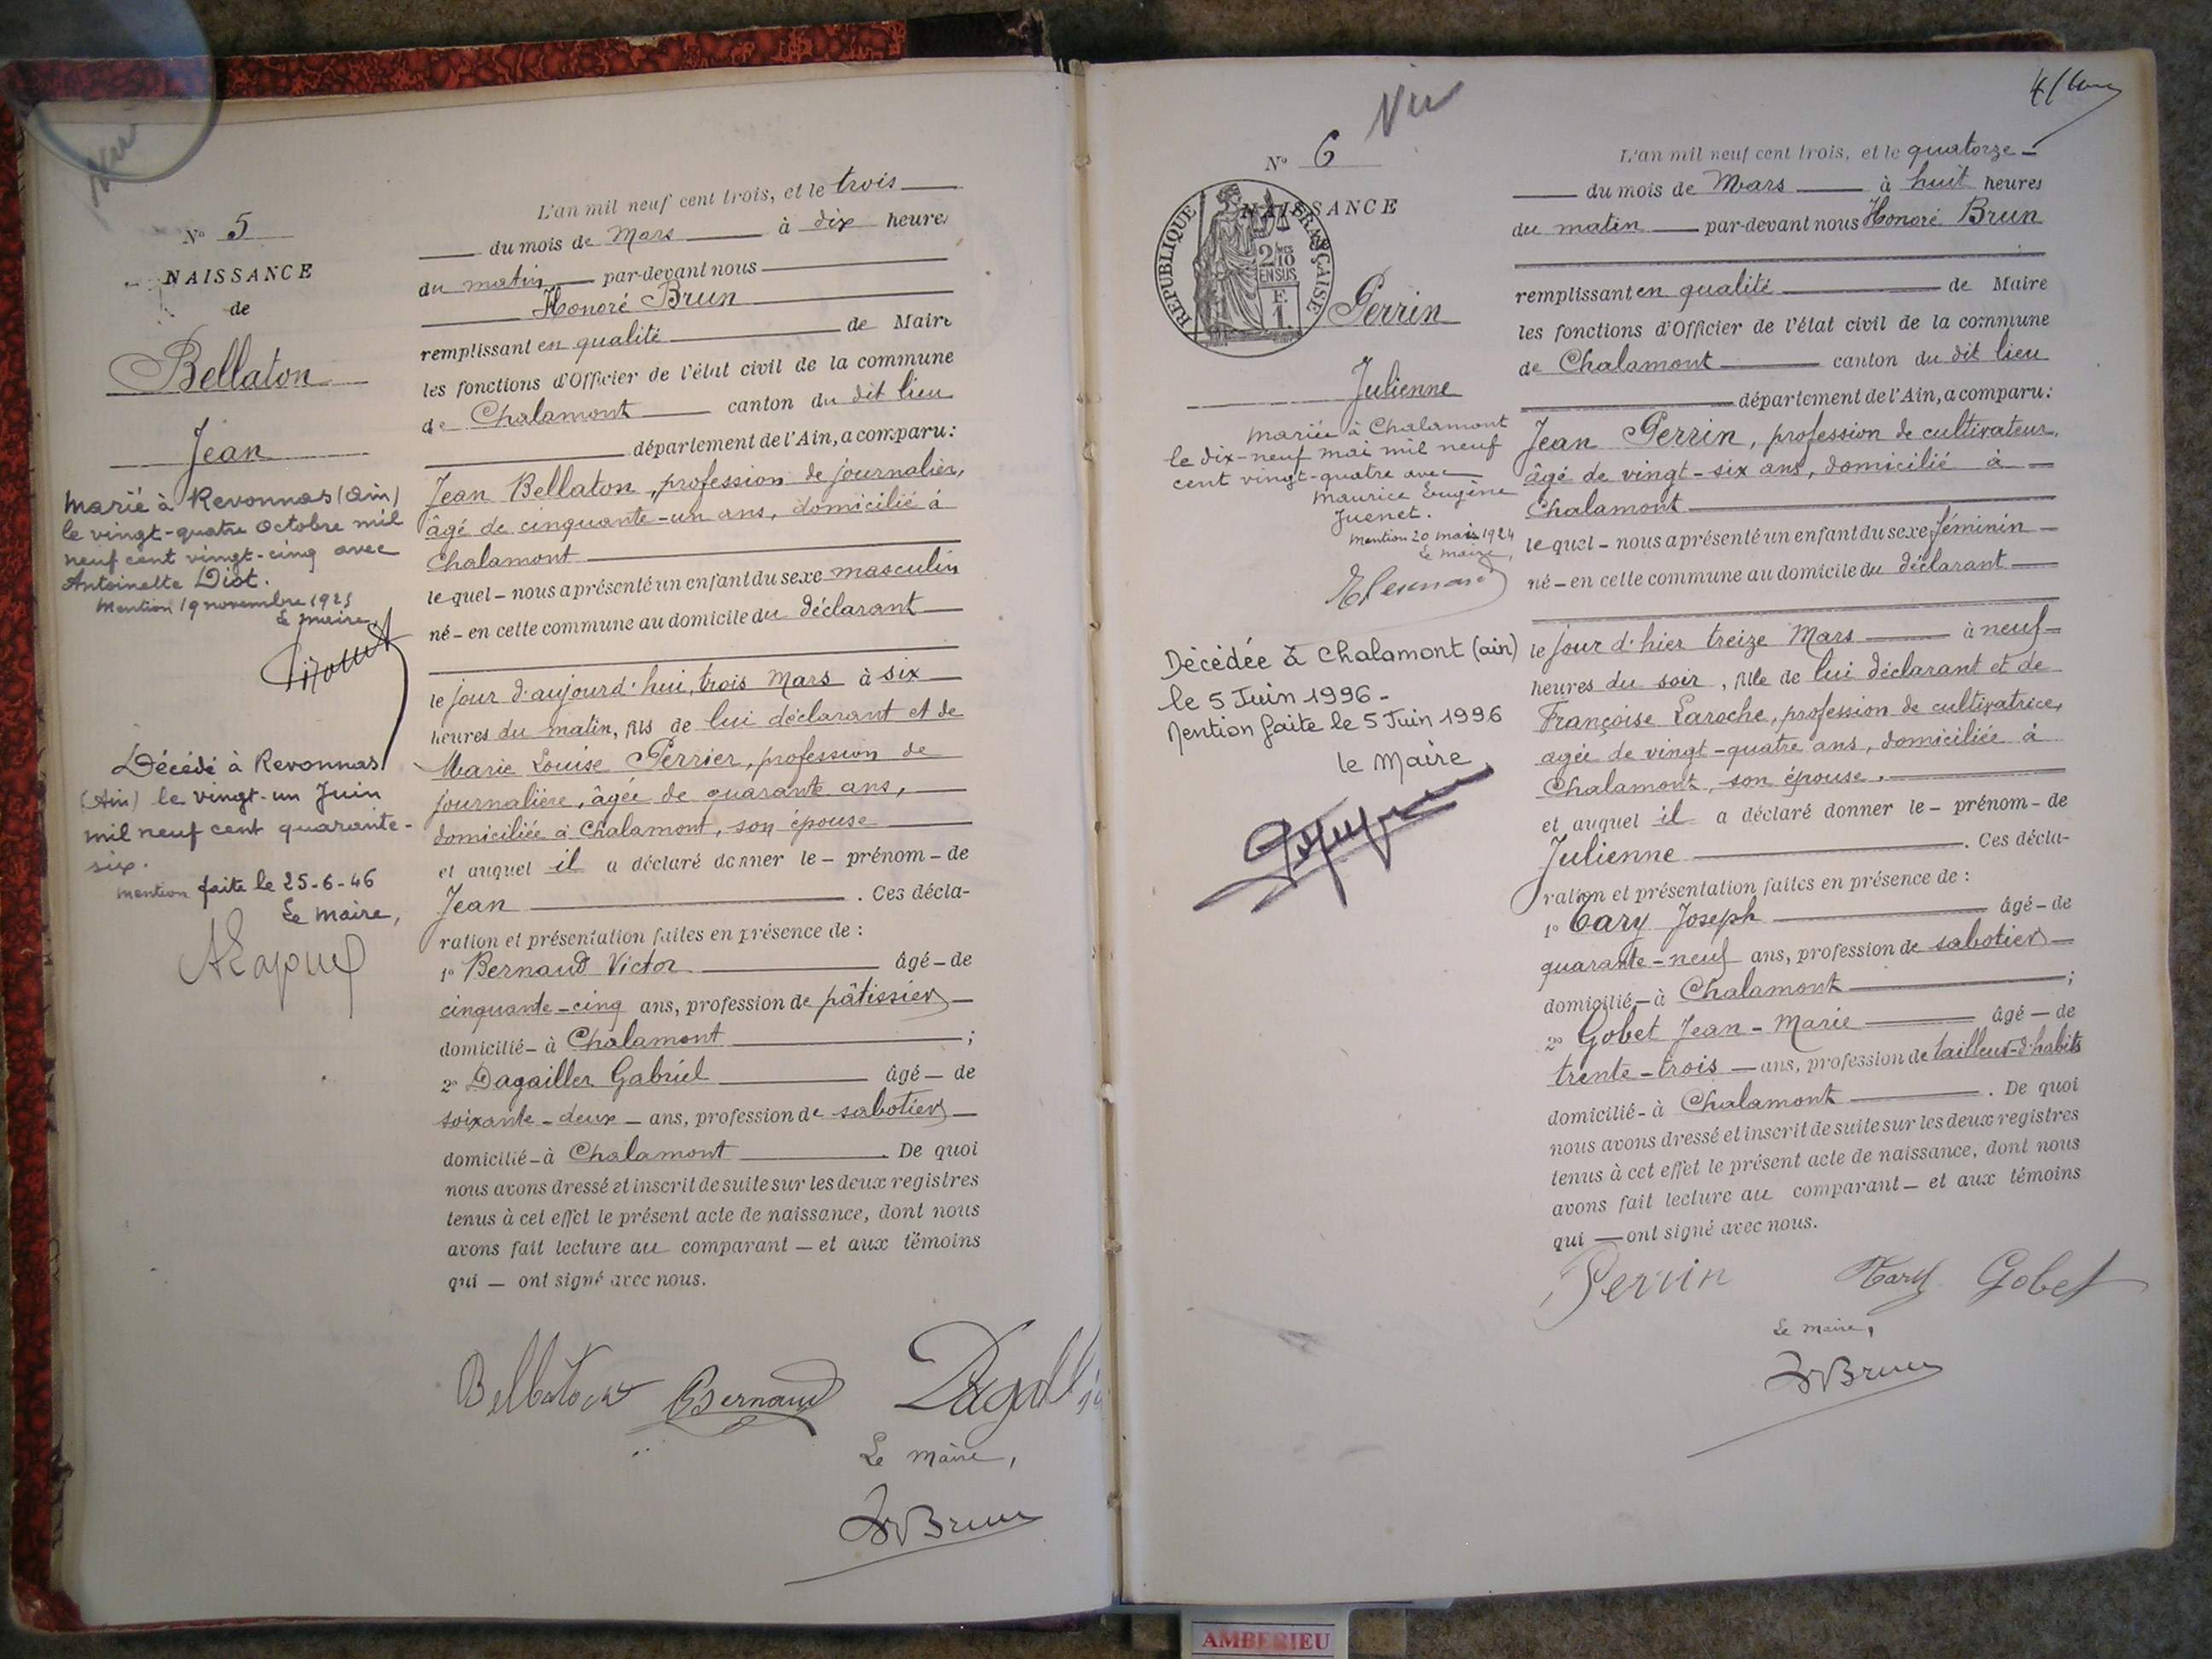 Vu
Nº 5
NAISSANCE
de
Bellaton
Jean
Marié à Revonnas (Ain)
le vingt-quatre Octobre mil
neuf cent vingt-cinq avec
Antoinette Diot.
Mention 19 novembre 1925
Le maire,
Décédé à Revonnas
(Ain) le vingt-un Juin
mil neuf cent quarante-
six.
mention faite le 25-6-46
Le Maire,
L'an mil neuf cent trois, et le trois
du mois de Mars à dix heures
du matin par-devant nous
Honoré Brun
remplissant en qualité de Maire
les fonctions d'Officier de l'état civil de la commune
de Chalamont canton du dit lieu
département de l'Ain, a comparu :
Jean Bellaton, profession de journalier,
âgé de cinquante-un ans, domicilié à
Chalamont
lequel - nous a présenté un enfant du sexe masculin
né - en cette commune au domicile du déclarant
le jour d'aujourd'hui, trois Mars à six
heures du matin, fils de lui déclarant et de
Marie Louise Perrier, profession de
journalière, âgée de quarante ans,
domiciliée à Chalamont, son épouse
et auquel il a déclaré donner le - prénom - de
Jean . Ces décla-
ration et présentation faites en présence de :
1º Bernaud Victor âgé - de
cinquante-cinq ans, profession de pâtissier
domicilié - à Chalamont ;
2º Dagailler Gabriel âgé - de
soixante-deux - ans, profession de sabotier
domicilié - à Chalamont . De quoi
nous avons dressé et inscrit de suite sur les deux registres
tenus à cet effet le présent acte de naissance, dont nous
avons fait lecture au comparant - et aux témoins
qui - ont signé avec nous.
Bellaton Bernaud
Le Maire,
Brun
Vu
Nº 6
NAISSANCE
REPUBLIQUE FRANÇAISE
2/10
EN SUS
F.
1.
Perrin
Julienne
Mariée à Chalamont
le dix-neuf mai mil neuf
cent vingt-quatre avec
Maurice Eugène
Juenet.
Mention 20 mai 1924
Le maire,
Décédée à Chalamont (ain)
le 5 Juin 1996 -
Mention faite le 5 Juin 1996
le Maire
L'an mil neuf cent trois, et le quatorze -
du mois de Mars à huit heures
du matin par-devant nous Honoré Brun
remplissant en qualité de Maire
les fonctions d'Officier de l'état civil de la commune
de Chalamont canton du dit lieu
département de l'Ain, a comparu :
Jean Perrin, profession de cultivateur,
âgé de vingt-six ans, domicilié à
Chalamont
lequel - nous a présenté un enfant du sexe féminin
né - en cette commune au domicile du déclarant
le jour d'hier treize Mars à neuf
heures du soir, fille de lui déclarant et de
Françoise Laroche, profession de cultivatrice,
agée de vingt-quatre ans, domiciliée à
Chalamont, son épouse.
et auquel il a déclaré donner le - prénom - de
Julienne . Ces décla-
ration et présentation faites en présence de :
1º Tary Joseph âgé - de
quarante-neuf ans, profession de sabotier
domicilié - à Chalamont ;
2º Gobet Jean-Marie âgé - de
trente-trois - ans, profession de tailleur-d'habits
domicilié - à Chalamont . De quoi
nous avons dressé et inscrit de suite sur les deux registres
tenus à cet effet le présent acte de naissance, dont nous
avons fait lecture au comparant - et aux témoins
qui - ont signé avec nous.
Perrin Tary Gobet
Le Maire,
Brun
AMBERIEU